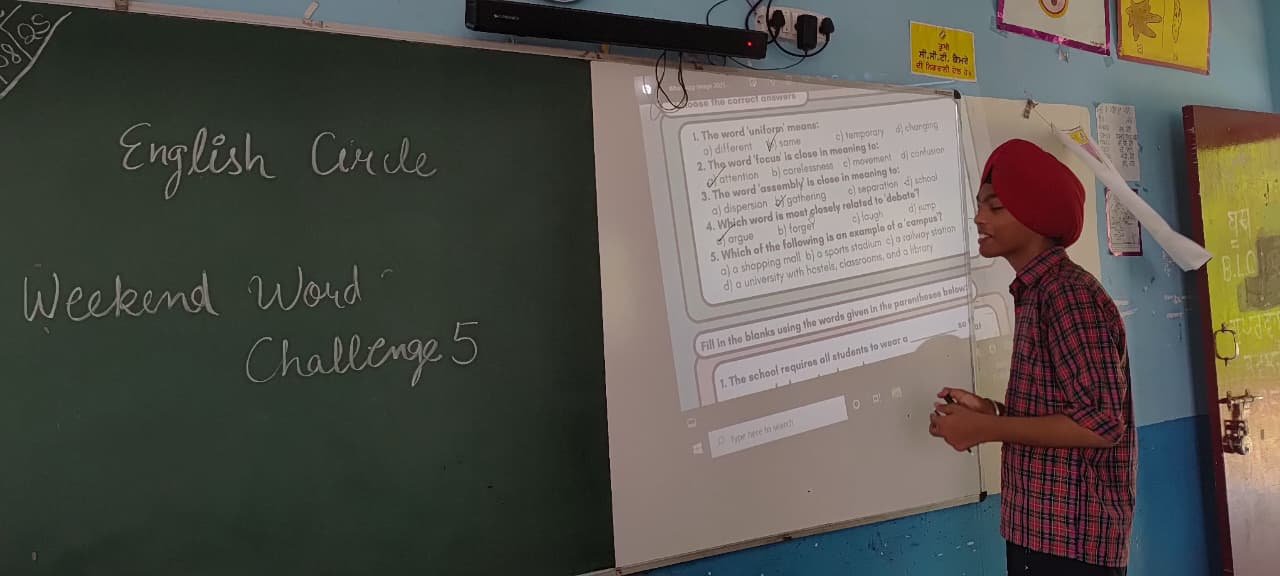 08/25
English Circle
Weekend Word
Challenge 5
Choose the correct answers
1. The word 'uniform' means:
a) different b) same c) temporary d) changing
2. The word 'focus' is close in meaning to:
a) attention b) carelessness c) movement d) confusion
3. The word 'assembly' is close in meaning to:
a) dispersion b) gathering c) separation d) school
4. Which word is most closely related to 'debate'?
a) argue b) forget c) laugh d) jump
5. Which of the following is an example of a 'campus'?
a) a shopping mall b) a sports stadium c) a railway station
d) a university with hostels, classrooms, and a library
Fill in the blanks using the words given in the parentheses below:
1. The school requires all students to wear a ________ so that
Type here to search
ਤੁਸੀਂ
ਸੀ.ਸੀ.ਟੀ. ਕੈਮਰੇ
ਦੀ ਨਿਗਰਾਨੀ ਹੇਠ ਹੋ।